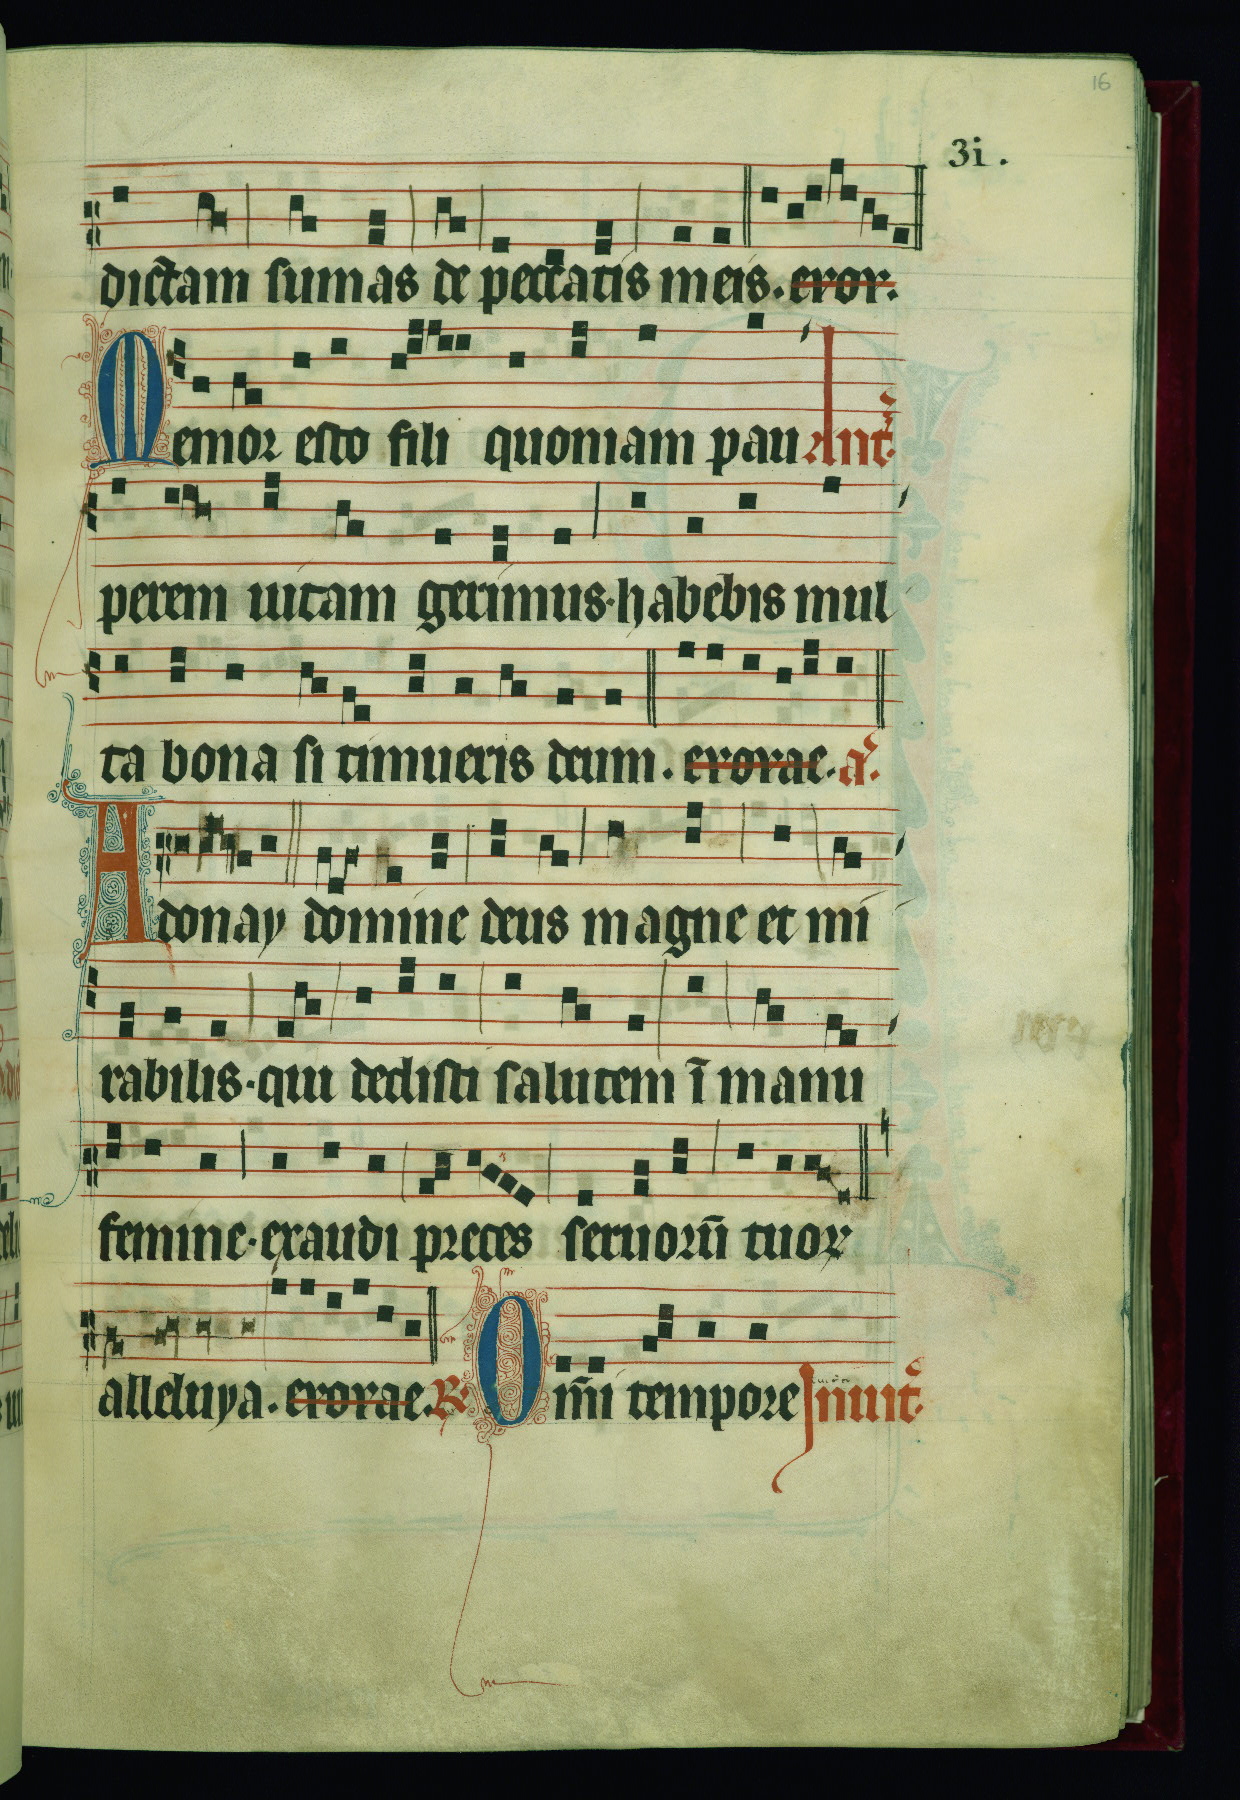 16
3i.
dictam sumas de peccatis meis. evov.
Memor esto fili quoniam pau Ant̃.
perem uitam gerimus·habebis mul
ta bona si timueris deum. evovae. a͂.
Adonay domine deus magne et mi
rabilis·qui dedisti salutem ī manu
femine·exaudi preces seruorū tuoꝝ
alleluya. evovae. R. Om̄i tempore Inuit̃.